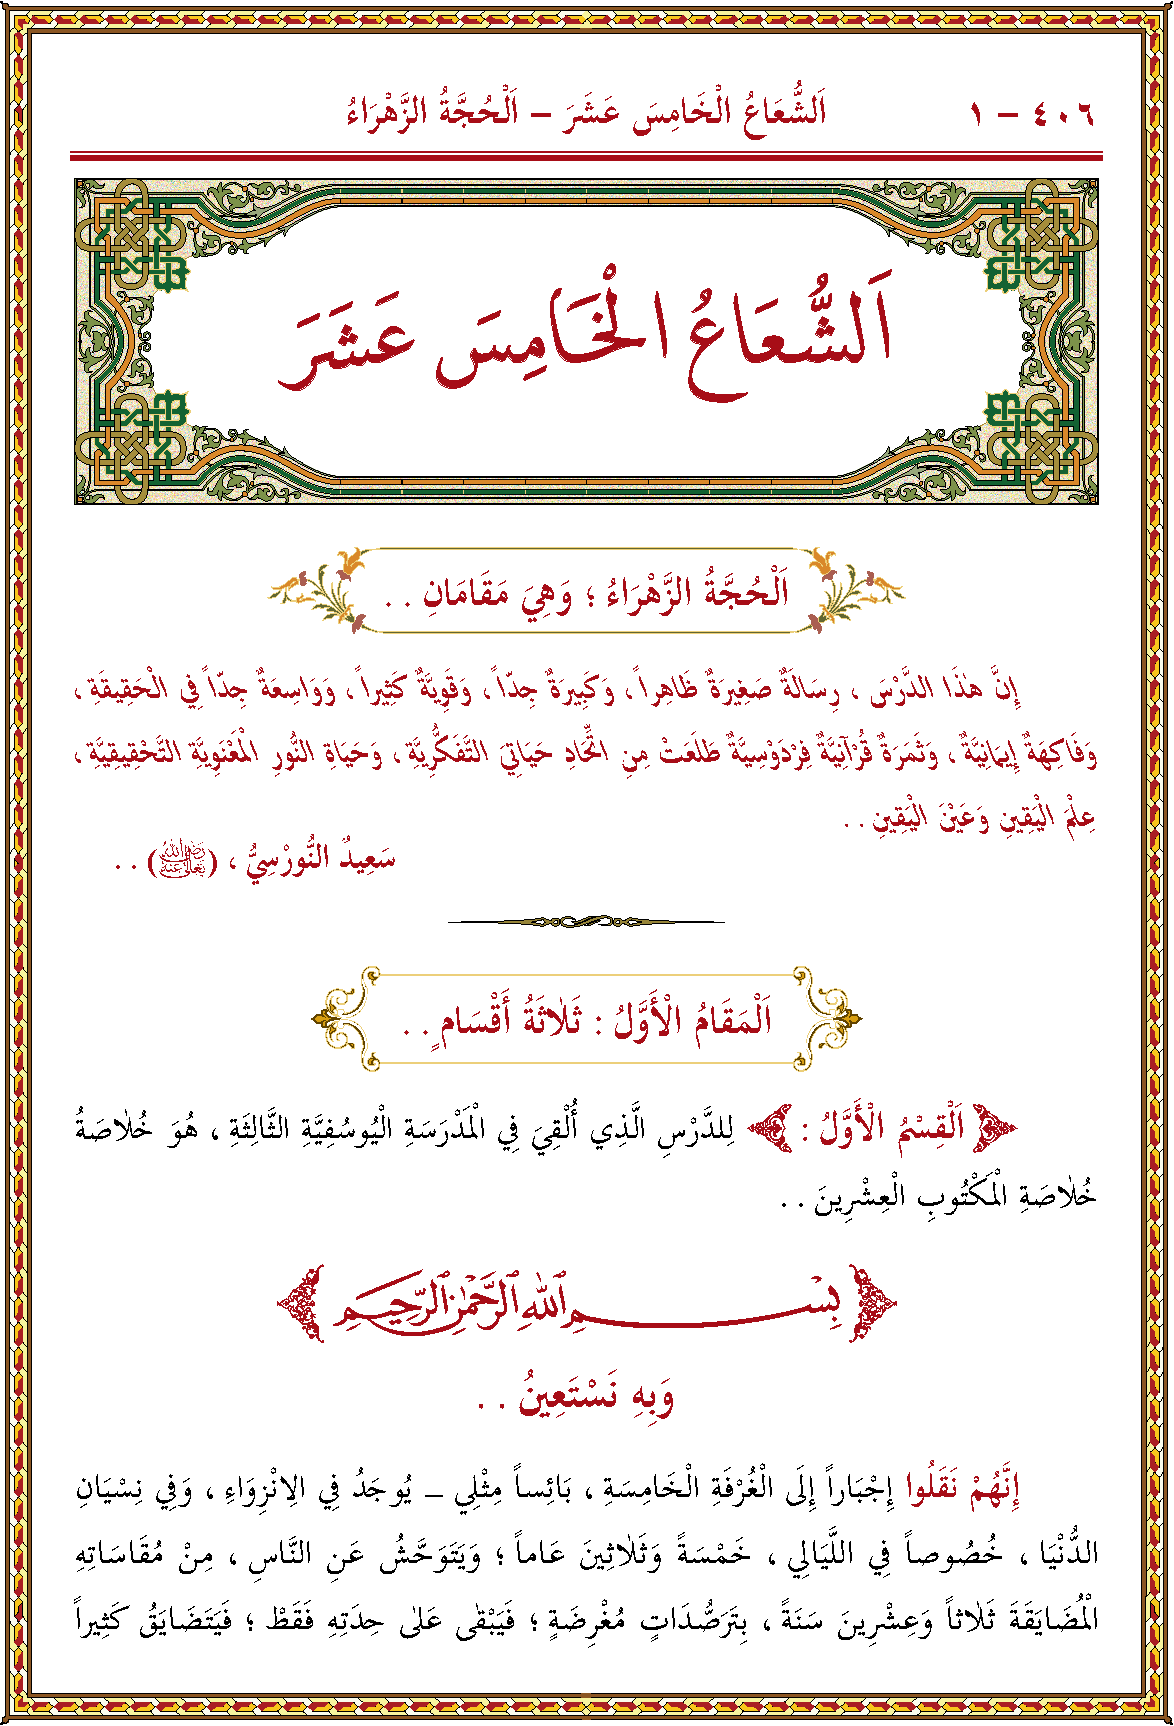 ٤٠٦ – ١ اَلشُّعَاعُ الْخَامِسَ عَشَرَ – اَلْحُجَّةُ الزَّهْرَاءُ
اَلشُّعَاعُ الْخَامِسَ عَشَرَ
اَلْحُجَّةُ الزَّهْرَاءُ ؛ وَهِيَ مَقَامَانِ . .
إِنَّ هٰذَا الدَّرْسَ ، رِسَالَةٌ صَغِيرَةٌ ظَاهِراً ، وَكَبِيرَةٌ جِدّاً ، وَقَوِيَّةٌ كَثِيراً ، وَوَاسِعَةٌ جِدّاً فِي الْحَقِيقَةِ ،
وَفَاكِهَةٌ إِيمَانِيَّةٌ ، وَثَمَرَةٌ قُرْآنِيَّةٌ فِرْدَوْسِيَّةٌ طَلَعَتْ مِنِ اتِّحَادِ حَيَاتِيَ التَّفَكُّرِيَّةِ ، وَحَيَاةِ النُّورِ الْمَعْنَوِيَّةِ التَّحْقِيقِيَّةِ ،
عِلْمَ الْيَقِينِ وَعَيْنَ الْيَقِينِ . .
سَعِيدٌ النُّورْسِيُّ ، (رضي الله تعالى عنه) . .
اَلْمَقَامُ الْأَوَّلُ : ثَلَاثَةُ أَقْسَامٍ . .
اَلْقِسْمُ الْأَوَّلُ : لِلدَّرْسِ الَّذِي أُلْقِيَ فِي الْمَدْرَسَةِ الْيُوسُفِيَّةِ الثَّالِثَةِ ، هُوَ خُلَاصَةُ
خُلَاصَةِ الْمَكْتُوبِ الْعِشْرِينَ . .
بِسْمِ اللّٰهِ الرَّحْمٰنِ الرَّحِيمِ
وَبِهِ نَسْتَعِينُ . .
إِنَّهُمْ نَقَلُوا إِجْبَاراً إِلَى الْغُرْفَةِ الْخَامِسَةِ ، بَائِساً مِثْلِي – يُوجَدُ فِي الِانْزِوَاءِ ، وَفِي نِسْيَانِ
الدُّنْيَا ، خُصُوصاً فِي اللَّيَالِي ، خَمْسَةً وَثَلَاثِينَ عَاماً ؛ وَيَتَوَحَّشُ عَنِ النَّاسِ ، مِنْ مُقَاسَاتِهِ
الْمُضَايَقَةَ ثَلَاثاً وَعِشْرِينَ سَنَةً ، بِتَرَصُّدَاتٍ مُغْرِضَةٍ ؛ فَيَبْقٰى عَلٰى حِدَتِهِ فَقَطْ ؛ فَيَتَضَايَقُ كَثِيراً